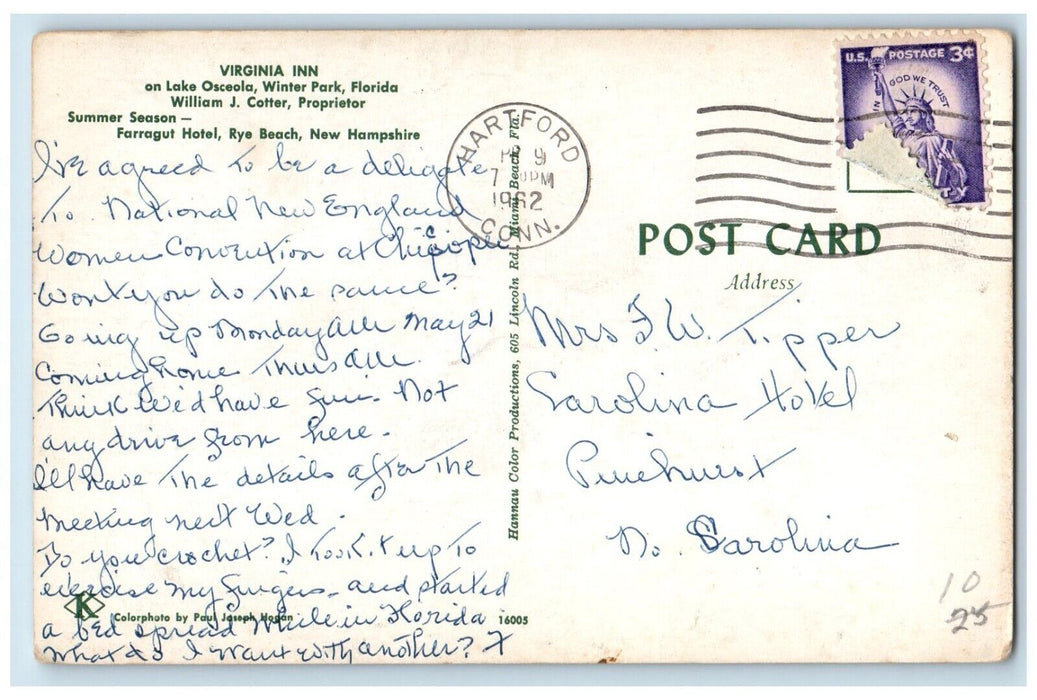 VIRGINIA INN
on Lake Osceola, Winter Park, Florida
William J. Cotter, Proprietor
Summer Season —
Farragut Hotel, Rye Beach, New Hampshire
I've agreed to be a deligate
to National New England
Women Convention at Chicopee
Won't you do the same?
Going up Monday AM May 21
Coming home Thurs AM.
Think we'd have fun. Not
any drive from here.
I'll have the details after the
meeting next Wed.
Do you crochet? I took it up to
exercise my fingers - and started
a bed spread while in Florida
What do I want with another? F
K
Colorphoto by Paul Joseph Hogan
16005
Hannau Color Productions, 605 Lincoln Rd., Miami Beach, Fla.
HARTFORD
9
7 PM
1962
CONN.
U.S. POSTAGE 3¢
IN GOD WE TRUST
POST CARD
Address
Mrs F. W. Tipper
Carolina Hotel
Pinehurst
No. Carolina
10
25